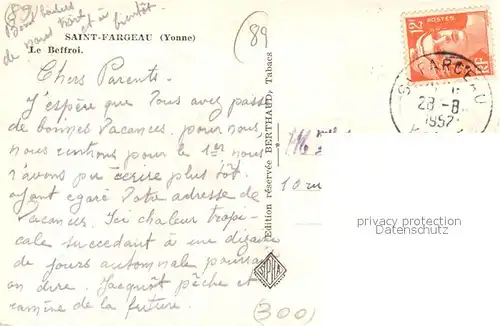 (89)
Bons baisers
de nous trois
et à bientôt.
SAINT-FARGEAU (Yonne)
Le Beffroi.
(89
Chers Parents.
J'espère que Vous avez passé
de bonnes Vacances. pour nous,
nous rentrons pour le 1er nous
n'avons pu écrire plus tôt.
Ayant égaré Votre adresse de
Vacances. Ici chaleur tropi-
cale succedant à une dizaine
de jours automnale pourrait
on dire. Jacquot pêche et
camine de la friture.
(300)
Edition réservée BERTHAUD, Tabacs
POSTES
12F
RF
ST FARGEAU
28-8
1952
10 ru
privacy protection
Datenschutz